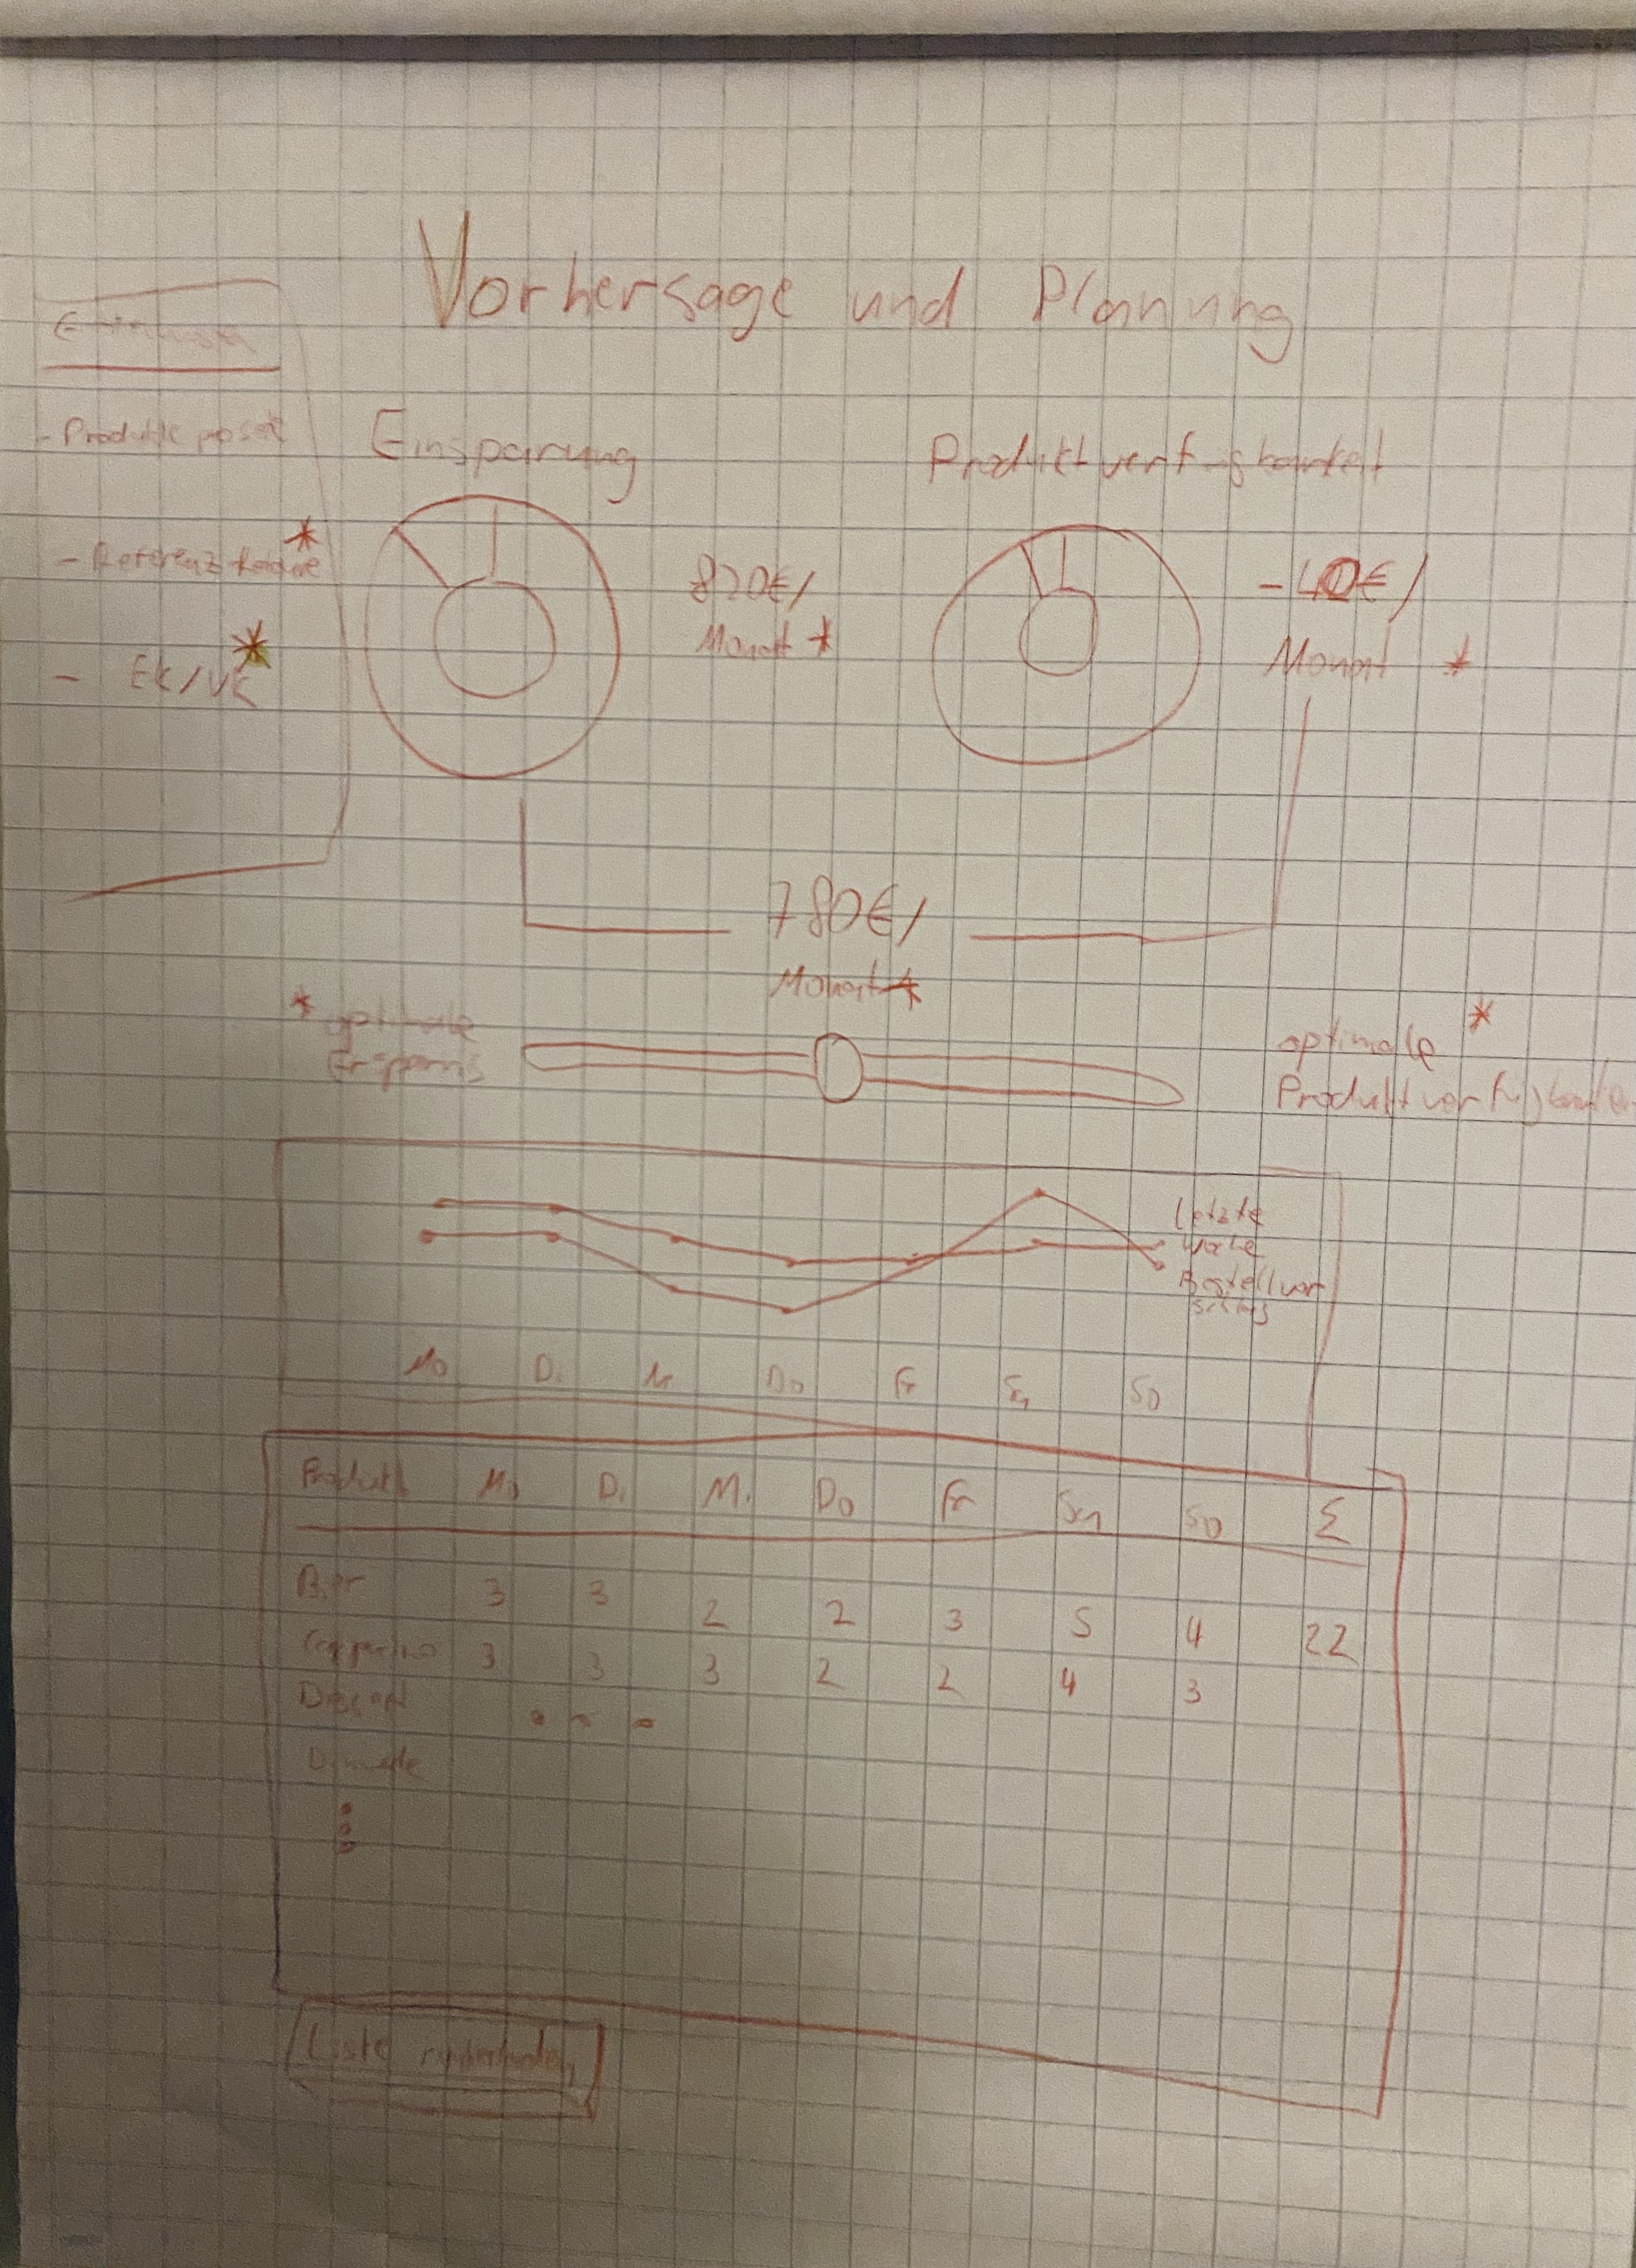 Vorhersage und Planung
- Produkte
- Referenz
- EK/VK
Einsparung
820€/
Monat *
Produktverfügbarkeit
-40€/
Monat *
780€/
Monat *
* optimale
Ersparnis
optimale *
Produktverfügbarkeit
Letzte
Woche
Bestellvor
schlag
Mo Di Mi Do Fr Sa So
Produkt Mo Di Mi Do Fr Sa So Σ
Bier 3 3 2 2 3 5 4 22
3 3 3 2 2 4 3
Liste runterladen